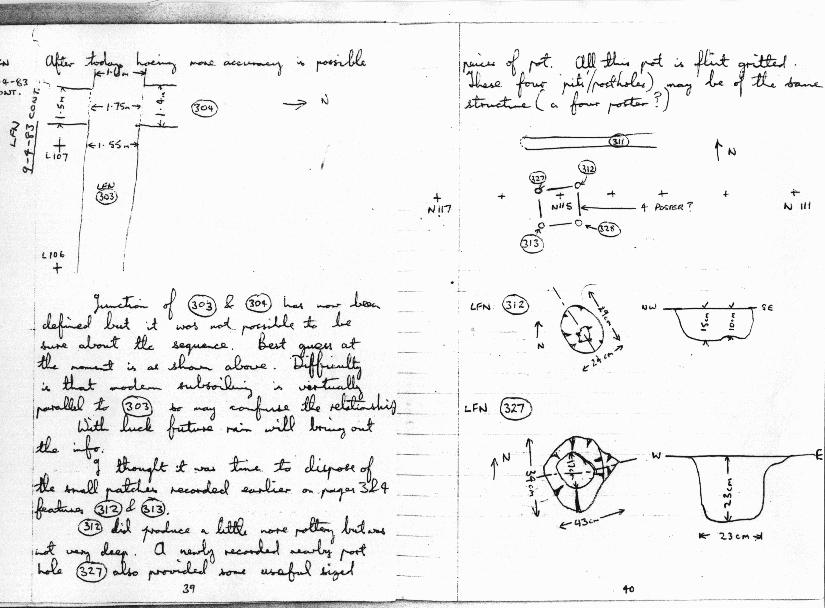 After todays hoeing more accuracy is possible
LFN
9-4-83 CONT.
1.5m
1.75m
1.4m
304
N
L107
1.55m
LFN
303
L106
Junction of 303 & 304 has now been
defined but it was not possible to be
sure about the sequence. Best guess at
the moment is as shown above. Difficulty
is that modern subsoiling is virtually
parallel to 303 so may confuse the relationship
With luck future rain will bring out
the info.
I thought it was time to dispose of
the small patches recorded earlier on pages 3&4
features 312 & 313.
312 did produce a little more pottery but was
not very deep. A newly recorded nearby post
hole 327 also provided some useful sized
39
pieces of pot. All this pot is flint gritted.
These four pits (postholes) may be of the same
structure (a four poster?)
311
N
327
312
N117
N115
4 POSTER?
N 111
313
328
LFN 312
N
29cm
24cm
NW
SE
15cm
10cm
LFN 327
N
34cm
17cm
43cm
W
E
23cm
23cm
40